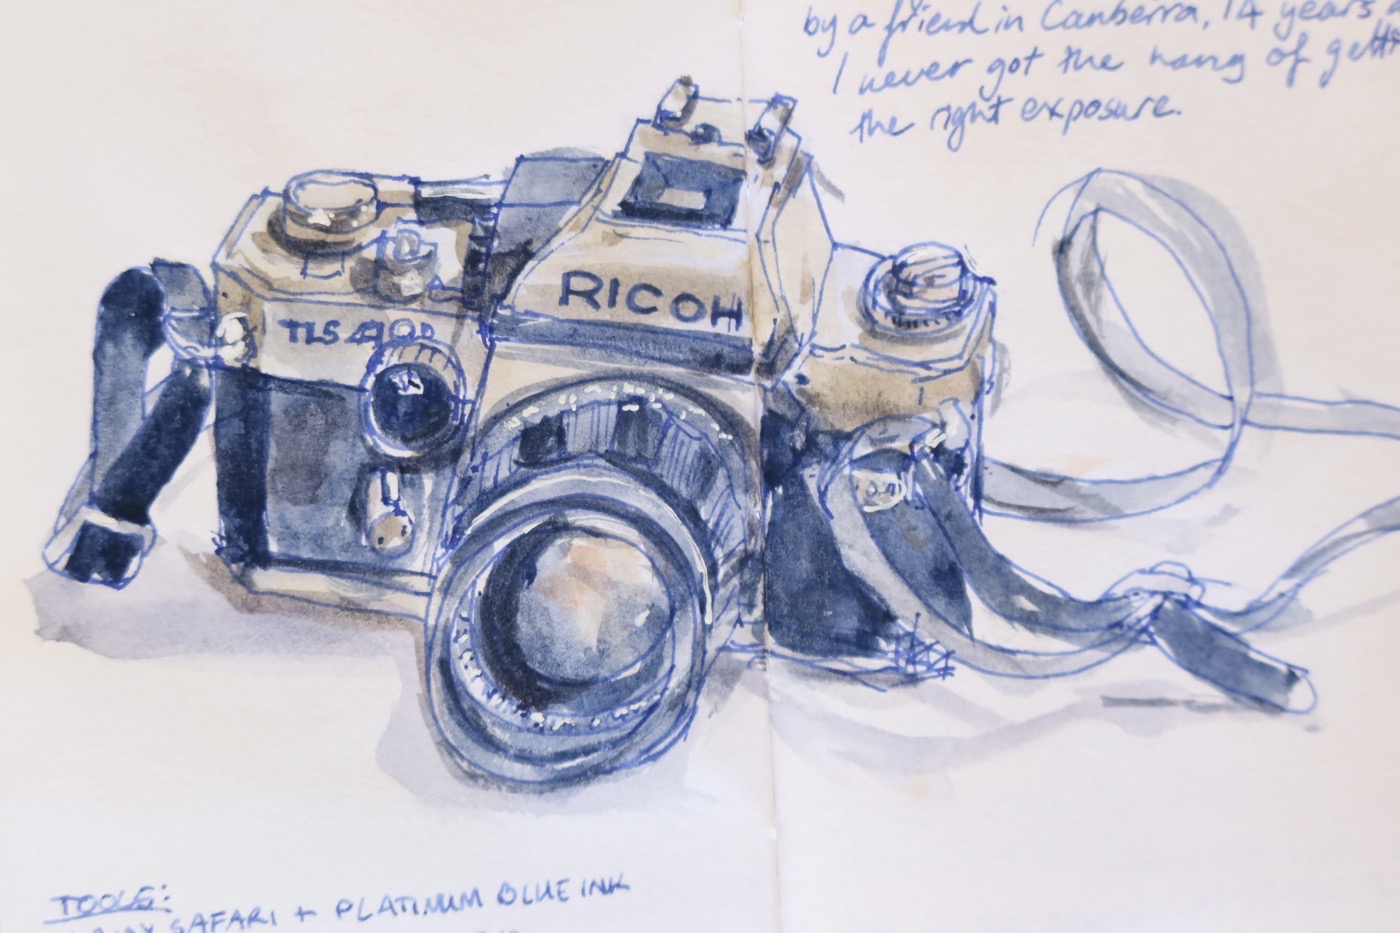 by a friend in Canberra, 14 years
I never got the hang of
the right exposure.
RICOH
TLS 401
TOOLS:
SAFARI + PLATINUM BLUE INK